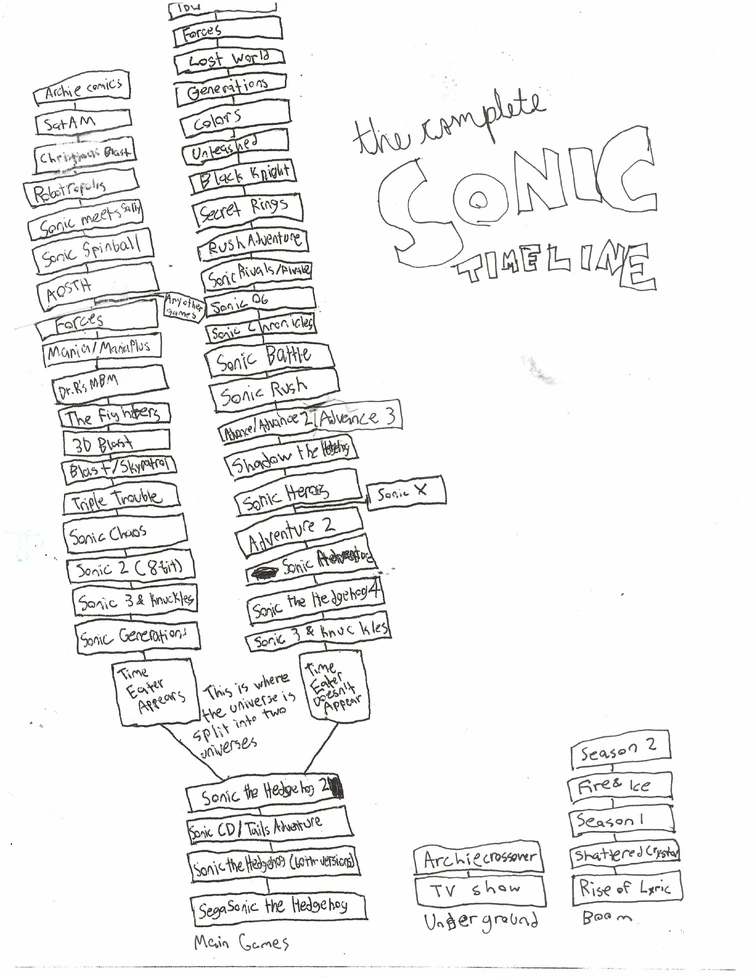 the complete
SONIC
TIMELINE
Archie comics
SatAM
Christmas Blast
Robotropolis
Sonic meets Sally
Sonic Spinball
AOSTH
Any other
games
Forces
Mania/Mania Plus
Dr. R's MBM
The Fighters
3D Blast
Blast/Skypatrol
Triple Trouble
Sonic Chaos
Sonic 2 (8-bit)
Sonic 3 & Knuckles
Sonic Generations
Time
Eater
Appears
Forces
Lost World
Generations
Colors
Unleashed
Black Knight
Secret Rings
Rush Adventure
Sonic Rivals/
Sonic 06
Sonic Chronicles
Sonic Battle
Sonic Rush
Advance/Advance 2
Advance 3
Shadow the Hedgehog
Sonic Heroes
Sonic X
Adventure 2
Sonic Adventure
Sonic the Hedgehog 4
Sonic 3 & Knuckles
Time
Eater
Doesn't
Appear
This is where
the universe is
split into two
universes
Sonic the Hedgehog 2
Sonic CD/Tails Adventure
Sonic the Hedgehog (both versions)
SegaSonic the Hedgehog
Main Games
Archie crossover
TV show
Underground
Season 2
Fire & Ice
Season 1
Shattered Crystal
Rise of Lyric
Boom